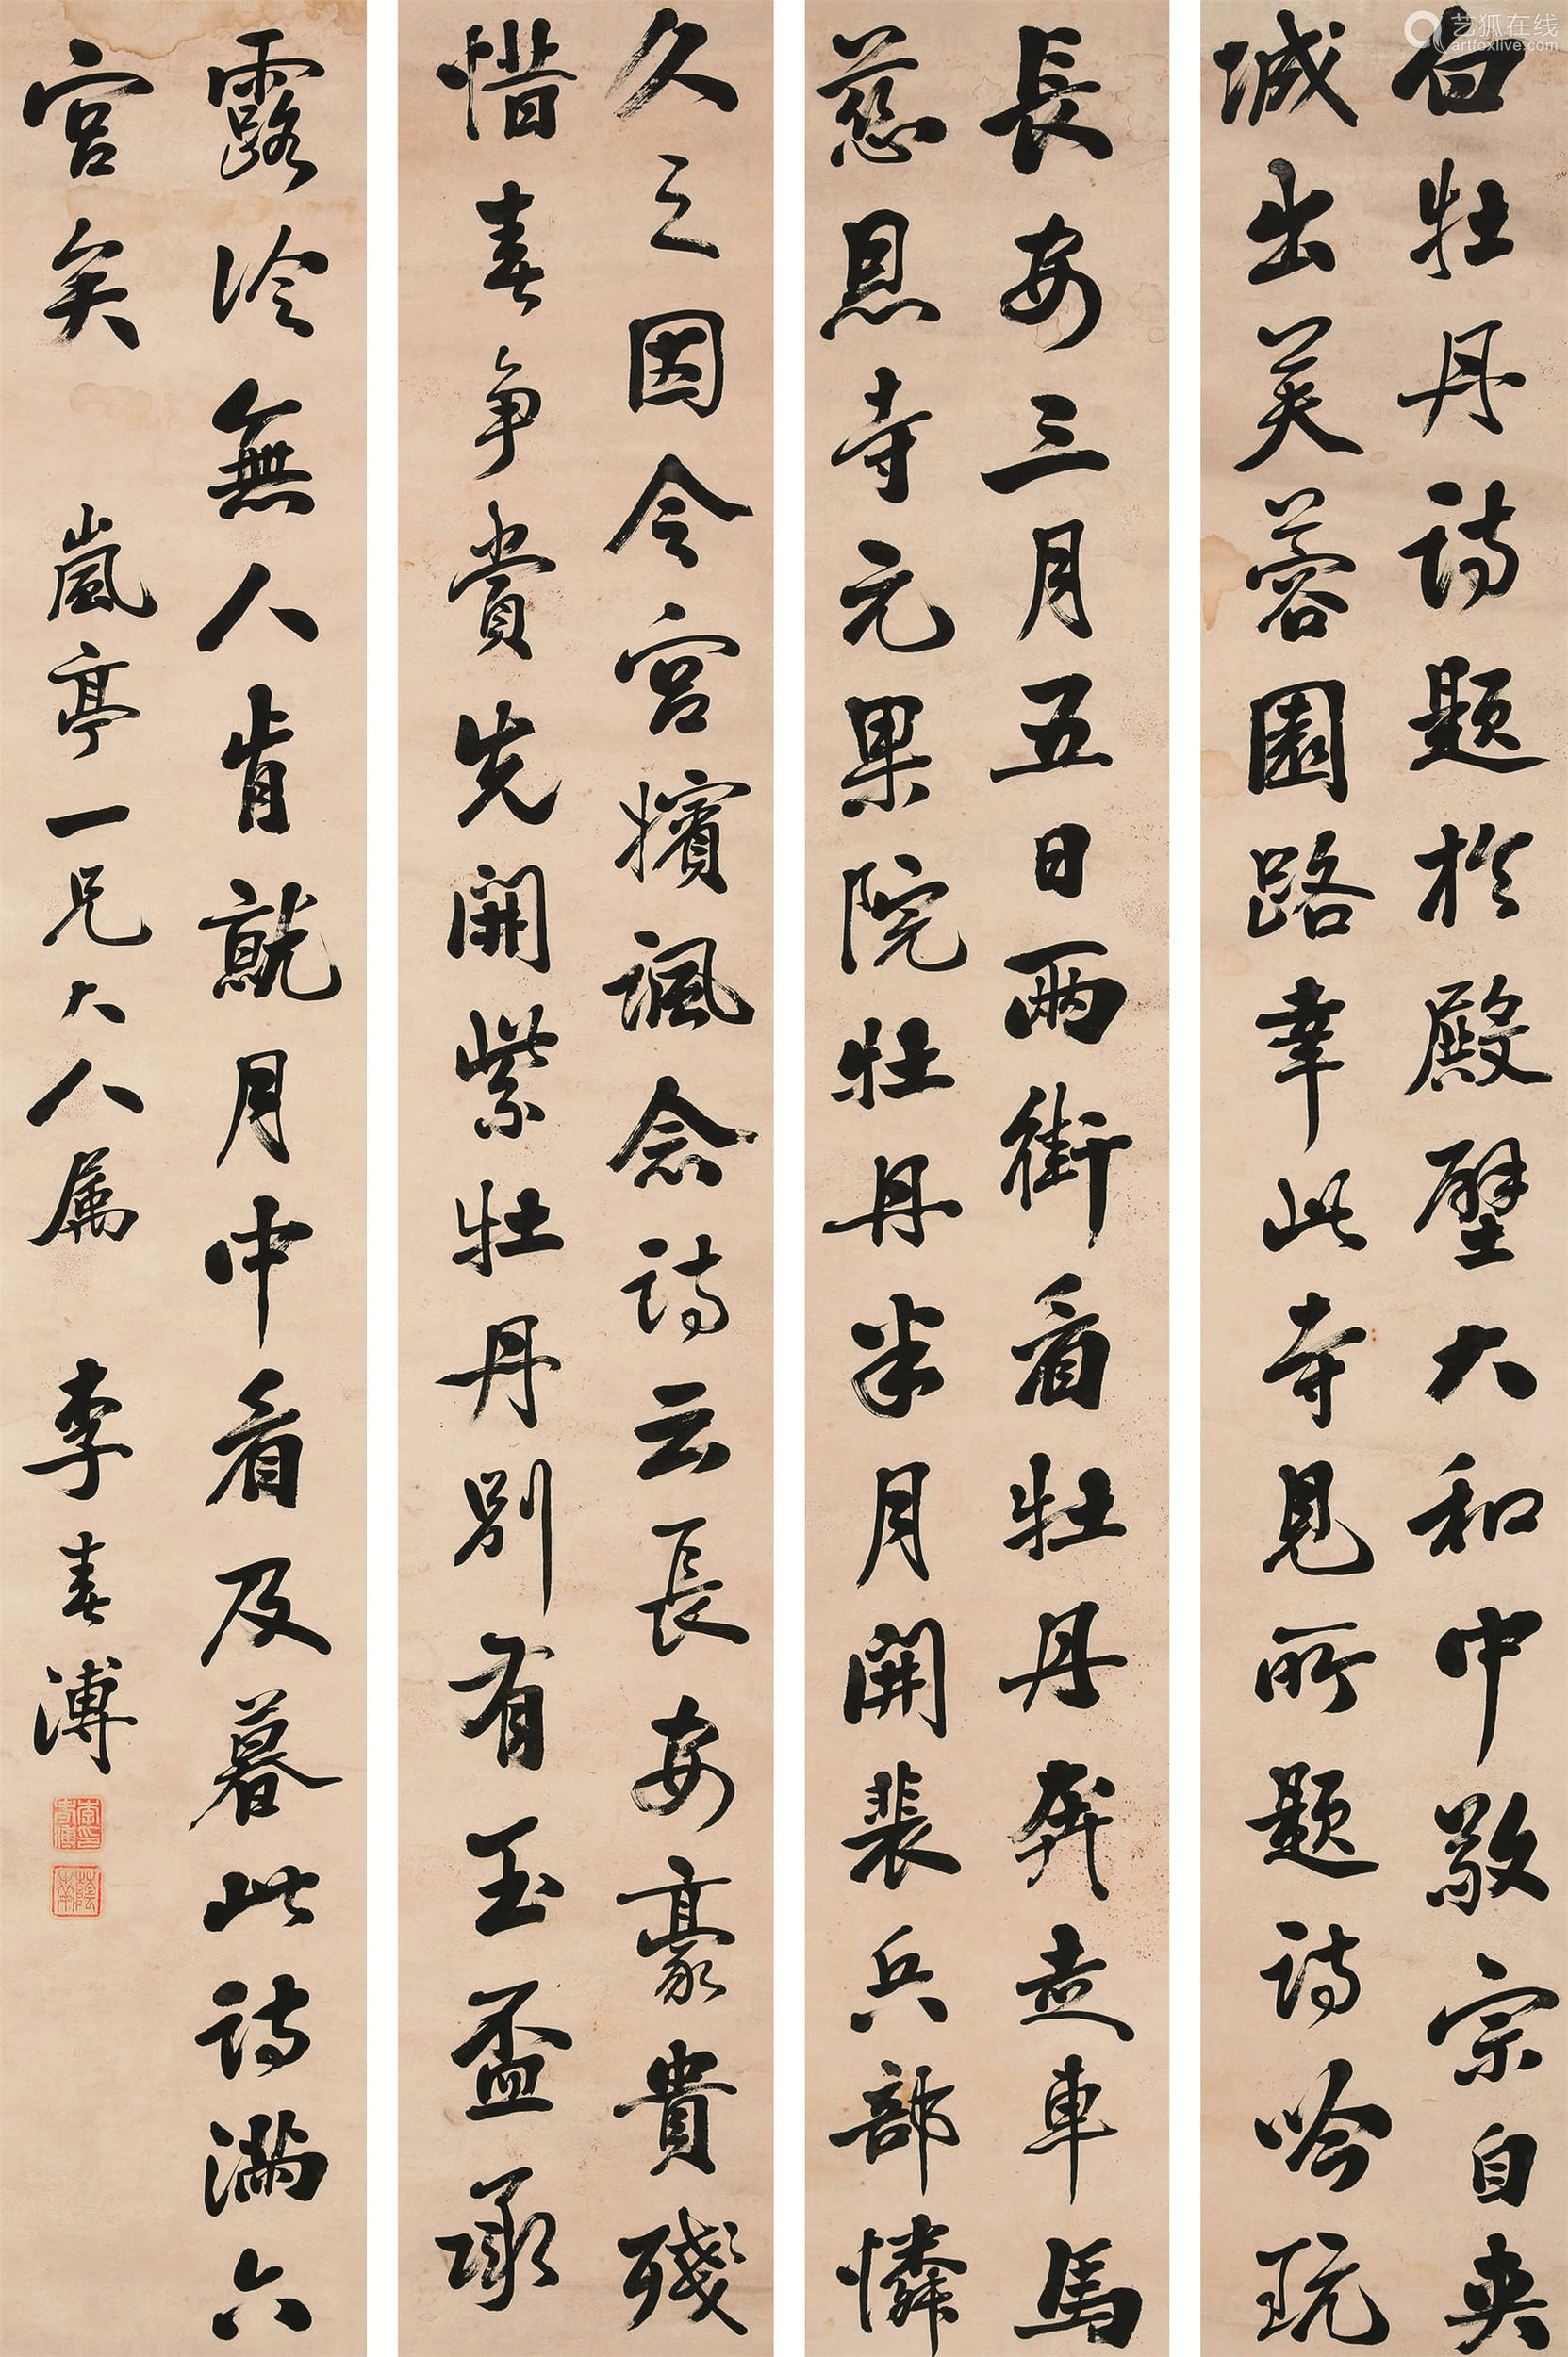 白牡丹詩題於殿壁大和中敬宗自夾
城出芙蓉園路幸此寺見所題詩吟玩
長安三月五日兩街看牡丹奔走車馬
慈恩寺元果院牡丹半月開裴兵部憐
久之因令宮嬪諷念詩云長安豪貴殘
惜春爭賞先開紫牡丹別有玉盃承
露冷無人肯就月中看及暮此詩滿六
宮矣
嵐亭一兄大人属
李春溥
艺狐在线
artfoxlive.com